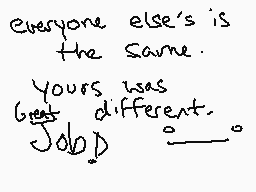 everyone else's is
the same.
yours was
Great different.
Job :D